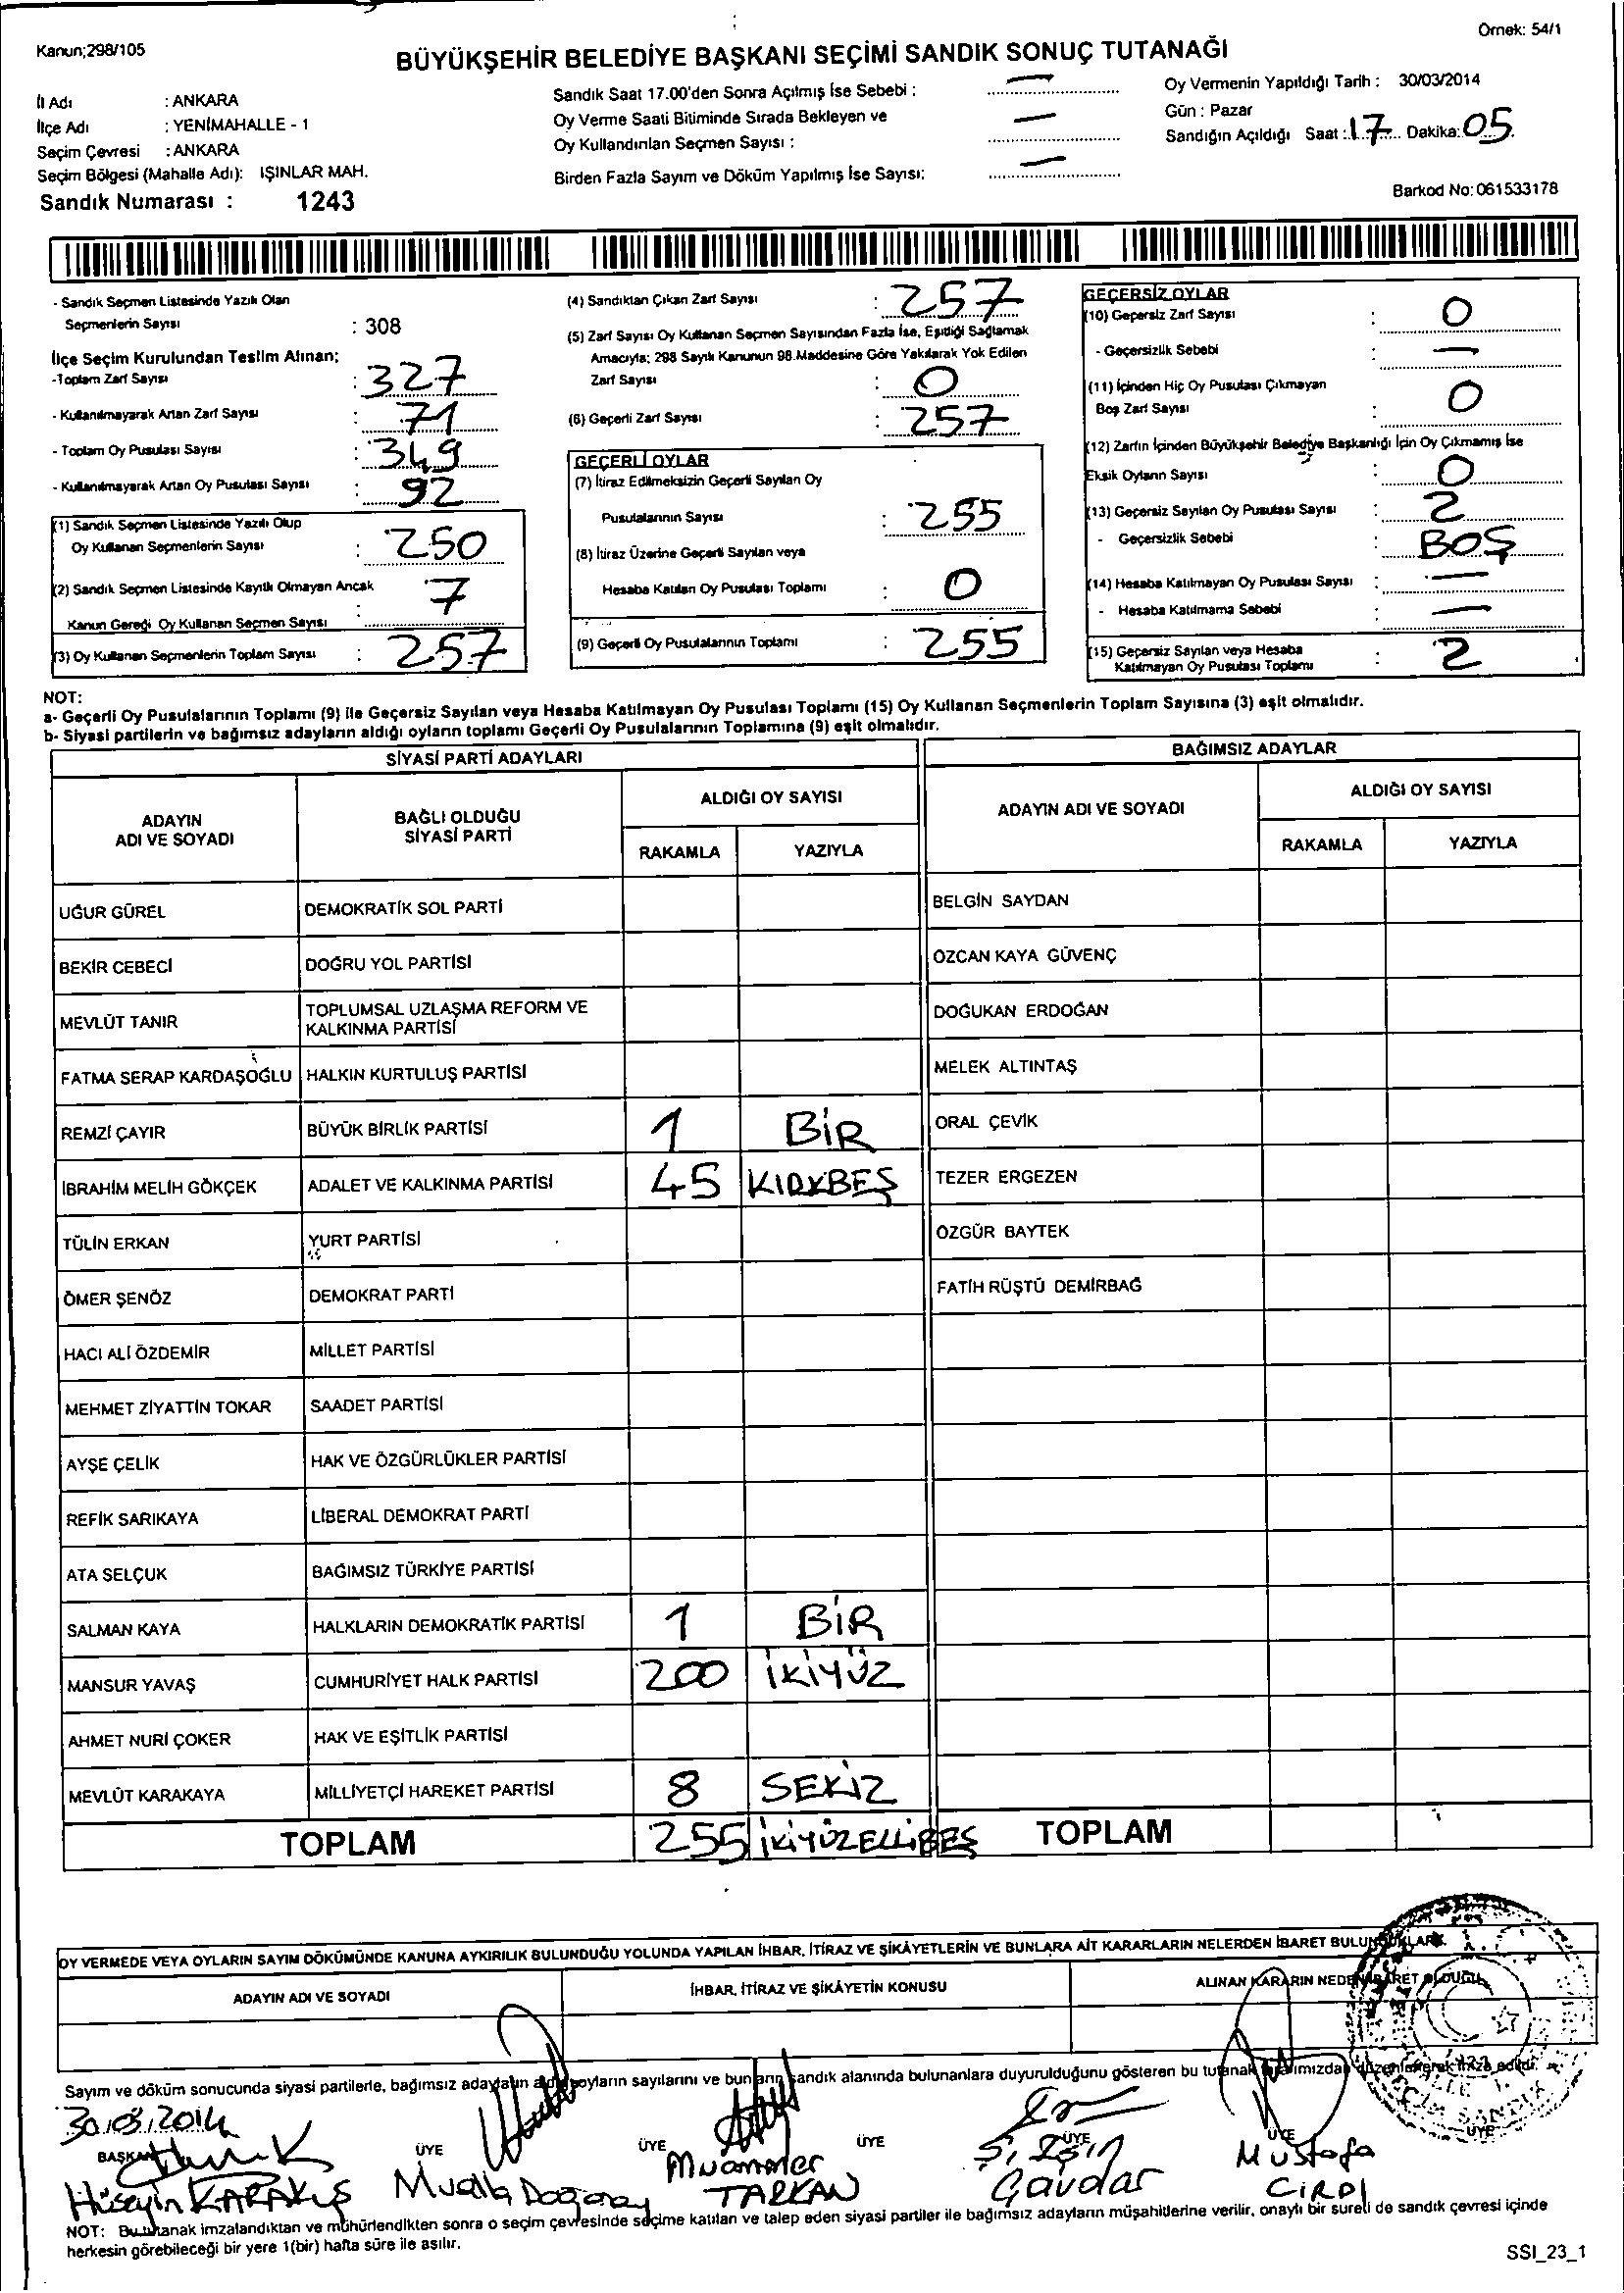 Kanun;298/105
Örnek: 54/1
BÜYÜKŞEHİR BELEDİYE BAŞKANI SEÇİMİ SANDIK SONUÇ TUTANAĞI
İl Adı : ANKARA
İlçe Adı : YENİMAHALLE - 1
Seçim Çevresi : ANKARA
Seçim Bölgesi (Mahalle Adı): IŞINLAR MAH.
Sandık Numarası : 1243
Sandık Saat 17.00'den Sonra Açılmış İse Sebebi : —
Oy Verme Saati Bitiminde Sırada Bekleyen ve
Oy Kullandırılan Seçmen Sayısı : —
Birden Fazla Sayım ve Döküm Yapılmış İse Sayısı: —
Oy Vermenin Yapıldığı Tarih : 30/03/2014
Gün : Pazar
Sandığın Açıldığı Saat : 17 Dakika: 05
Barkod No: 061533178
- Sandık Seçmen Listesinde Yazılı Olan
Seçmenlerin Sayısı : 308
İlçe Seçim Kurulundan Teslim Alınan;
-Toplam Zarf Sayısı : 327
- Kullanılmayarak Artan Zarf Sayısı : 71
- Toplam Oy Pusulası Sayısı : 349
- Kullanılmayarak Artan Oy Pusulası Sayısı : 92
(1) Sandık Seçmen Listesinde Yazılı Olup
Oy Kullanan Seçmenlerin Sayısı : 250
(2) Sandık Seçmen Listesinde Kayıtlı Olmayan Ancak
Kanun Gereği Oy Kullanan Seçmen Sayısı : 7
(3) Oy Kullanan Seçmenlerin Toplam Sayısı : 257
(4) Sandıktan Çıkan Zarf Sayısı : 257
(5) Zarf Sayısı Oy Kullanan Seçmen Sayısından Fazla İse, Eşitliği Sağlamak
Amacıyla; 298 Sayılı Kanunun 98.Maddesine Göre Yakılarak Yok Edilen
Zarf Sayısı : 0
(6) Geçerli Zarf Sayısı : 257
GEÇERLİ OYLAR
(7) İtiraz Edilmeksizin Geçerli Sayılan Oy
Pusulalarının Sayısı : 255
(8) İtiraz Üzerine Geçerli Sayılan veya
Hesaba Katılan Oy Pusulası Toplamı : 0
(9) Geçerli Oy Pusulalarının Toplamı : 255
GEÇERSİZ OYLAR
(10) Geçersiz Zarf Sayısı : 0
- Geçersizlik Sebebi : —
(11) İçinden Hiç Oy Pusulası Çıkmayan
Boş Zarf Sayısı : 0
(12) Zarfın İçinden Büyükşehir Belediye Başkanlığı İçin Oy Çıkmamış İse
Eksik Oyların Sayısı : 0
(13) Geçersiz Sayılan Oy Pusulası Sayısı : 2
- Geçersizlik Sebebi : BOŞ
(14) Hesaba Katılmayan Oy Pusulası Sayısı : —
- Hesaba Katılmama Sebebi : —
(15) Geçersiz Sayılan veya Hesaba
Katılmayan Oy Pusulası Toplamı : 2
NOT:
a- Geçerli Oy Pusulalarının Toplamı (9) ile Geçersiz Sayılan veya Hesaba Katılmayan Oy Pusulası Toplamı (15) Oy Kullanan Seçmenlerin Toplam Sayısına (3) eşit olmalıdır.
b- Siyasi partilerin ve bağımsız adayların aldığı oyların toplamı Geçerli Oy Pusulalarının Toplamına (9) eşit olmalıdır.
SİYASİ PARTİ ADAYLARI
BAĞIMSIZ ADAYLAR
ADAYIN ADI VE SOYADI
BAĞLI OLDUĞU SİYASİ PARTİ
ALDIĞI OY SAYISI
RAKAMLA YAZIYLA
ADAYIN ADI VE SOYADI
ALDIĞI OY SAYISI
RAKAMLA YAZIYLA
UĞUR GÜREL DEMOKRATİK SOL PARTİ BELGİN SAYDAN
BEKİR CEBECİ DOĞRU YOL PARTİSİ ÖZCAN KAYA GÜVENÇ
MEVLÜT TANIR TOPLUMSAL UZLAŞMA REFORM VE KALKINMA PARTİSİ DOĞUKAN ERDOĞAN
FATMA SERAP KARDAŞOĞLU HALKIN KURTULUŞ PARTİSİ MELEK ALTINTAŞ
REMZİ ÇAYIR BÜYÜK BİRLİK PARTİSİ 1 BİR ORAL ÇEVİK
İBRAHİM MELİH GÖKÇEK ADALET VE KALKINMA PARTİSİ 45 KIRKBEŞ TEZER ERGEZEN
TÜLİN ERKAN YURT PARTİSİ ÖZGÜR BAYTEK
ÖMER ŞENÖZ DEMOKRAT PARTİ FATİH RÜŞTÜ DEMİRBAĞ
HACI ALİ ÖZDEMİR MİLLET PARTİSİ
MEHMET ZİYATTİN TOKAR SAADET PARTİSİ
AYŞE ÇELİK HAK VE ÖZGÜRLÜKLER PARTİSİ
REFİK SARIKAYA LİBERAL DEMOKRAT PARTİ
ATA SELÇUK BAĞIMSIZ TÜRKİYE PARTİSİ
SALMAN KAYA HALKLARIN DEMOKRATİK PARTİSİ 1 BİR
MANSUR YAVAŞ CUMHURİYET HALK PARTİSİ 200 İKİYÜZ
AHMET NURİ ÇOKER HAK VE EŞİTLİK PARTİSİ
MEVLÜT KARAKAYA MİLLİYETÇİ HAREKET PARTİSİ 8 SEKİZ
TOPLAM 255 İKİYÜZELLİBEŞ TOPLAM
OY VERMEDE VEYA OYLARIN SAYIM DÖKÜMÜNDE KANUNA AYKIRILIK BULUNDUĞU YOLUNDA YAPILAN İHBAR, İTİRAZ VE ŞİKÂYETLERİN VE BUNLARA AİT KARARLARIN NELERDEN İBARET BULUNDUKLARI
ADAYIN ADI VE SOYADI İHBAR, İTİRAZ VE ŞİKÂYETİN KONUSU ALINAN KARARIN NEDEN İBARET OLDUĞU
Sayım ve döküm sonucunda siyasi partilerle, bağımsız adayların aldığı oyların sayılarını ve bunların sandık alanında bulunanlara duyurulduğunu gösteren bu tutanak tarafımızdan düzenlenerek imza edildi.
30.03.2014
BAŞKAN ÜYE ÜYE ÜYE ÜYE ÜYE ÜYE
Hüseyin KARAKUŞ
Mualla Doğanay
Muammer TARKAN
Ş. Işın Çavdar
Mustafa CIRDI
NOT: Bu tutanak imzalandıktan ve mühürlendikten sonra o seçim çevresinde seçime katılan ve talep eden siyasi partiler ile bağımsız adayların müşahitlerine verilir, onaylı bir sureti de sandık çevresi içinde
herkesin görebileceği bir yere 1(bir) hafta süre ile asılır.
SSI_23_1